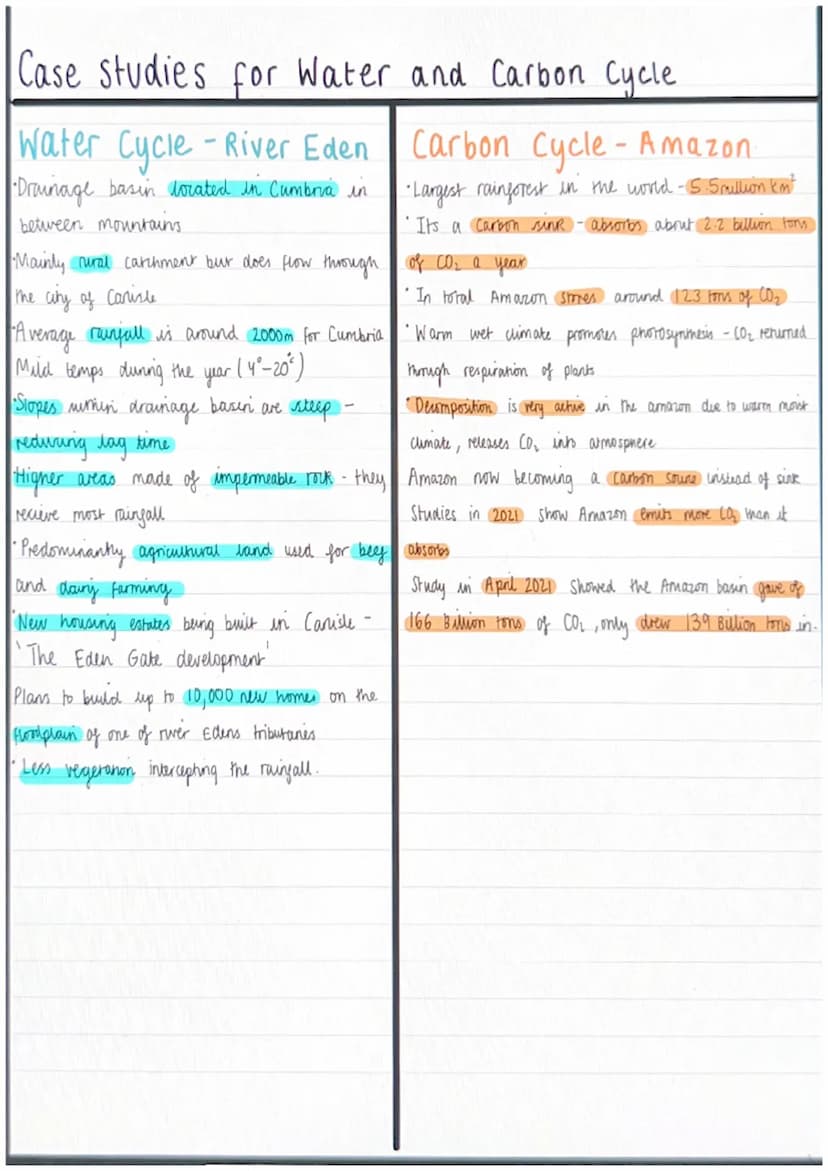 Case Studies for Water and Carbon Cycle
Water Cycle - River Eden
·Drainage basin located in Cumbria in
between mountains
·Mainly rural catchment but does flow through
the city of Carlisle
·Average rainfall is around 2000m for Cumbria
Mild temps during the year (4°-20°c)
·Slopes within drainage basin are steep -
reducing lag time
·Higher areas made of impermeable rock - they
recieve most rainfall
·Predominantly agricultural land used for beef
and dairy farming
·New housing estates being built in Carlisle -
'The Eden Gate development'
Plans to build up to 10,000 new homes on the
floodplain of one of river Edens tributaries
·Less vegetation intercepting the rainfall.
Carbon Cycle - Amazon
·Largest rainforest in the world - 5.5million km²
·Its a carbon sink - absorbs about 2.2 billion tons
of CO₂ a year
·In total Amazon stores around 123 tons of CO₂
·Warm wet climate promotes photosynthesis - CO₂ returned
through respiration of plants
·Decomposition is very active in the amazon due to warm moist
climate, releases CO₂ into atmosphere
Amazon now becoming a carbon source instead of sink
Studies in 2021 show Amazon emits more CO₂ than it
absorbs
Study in April 2021 showed the Amazon basin gave of
166 Billion tons of CO₂, only drew 139 Billion tons in.